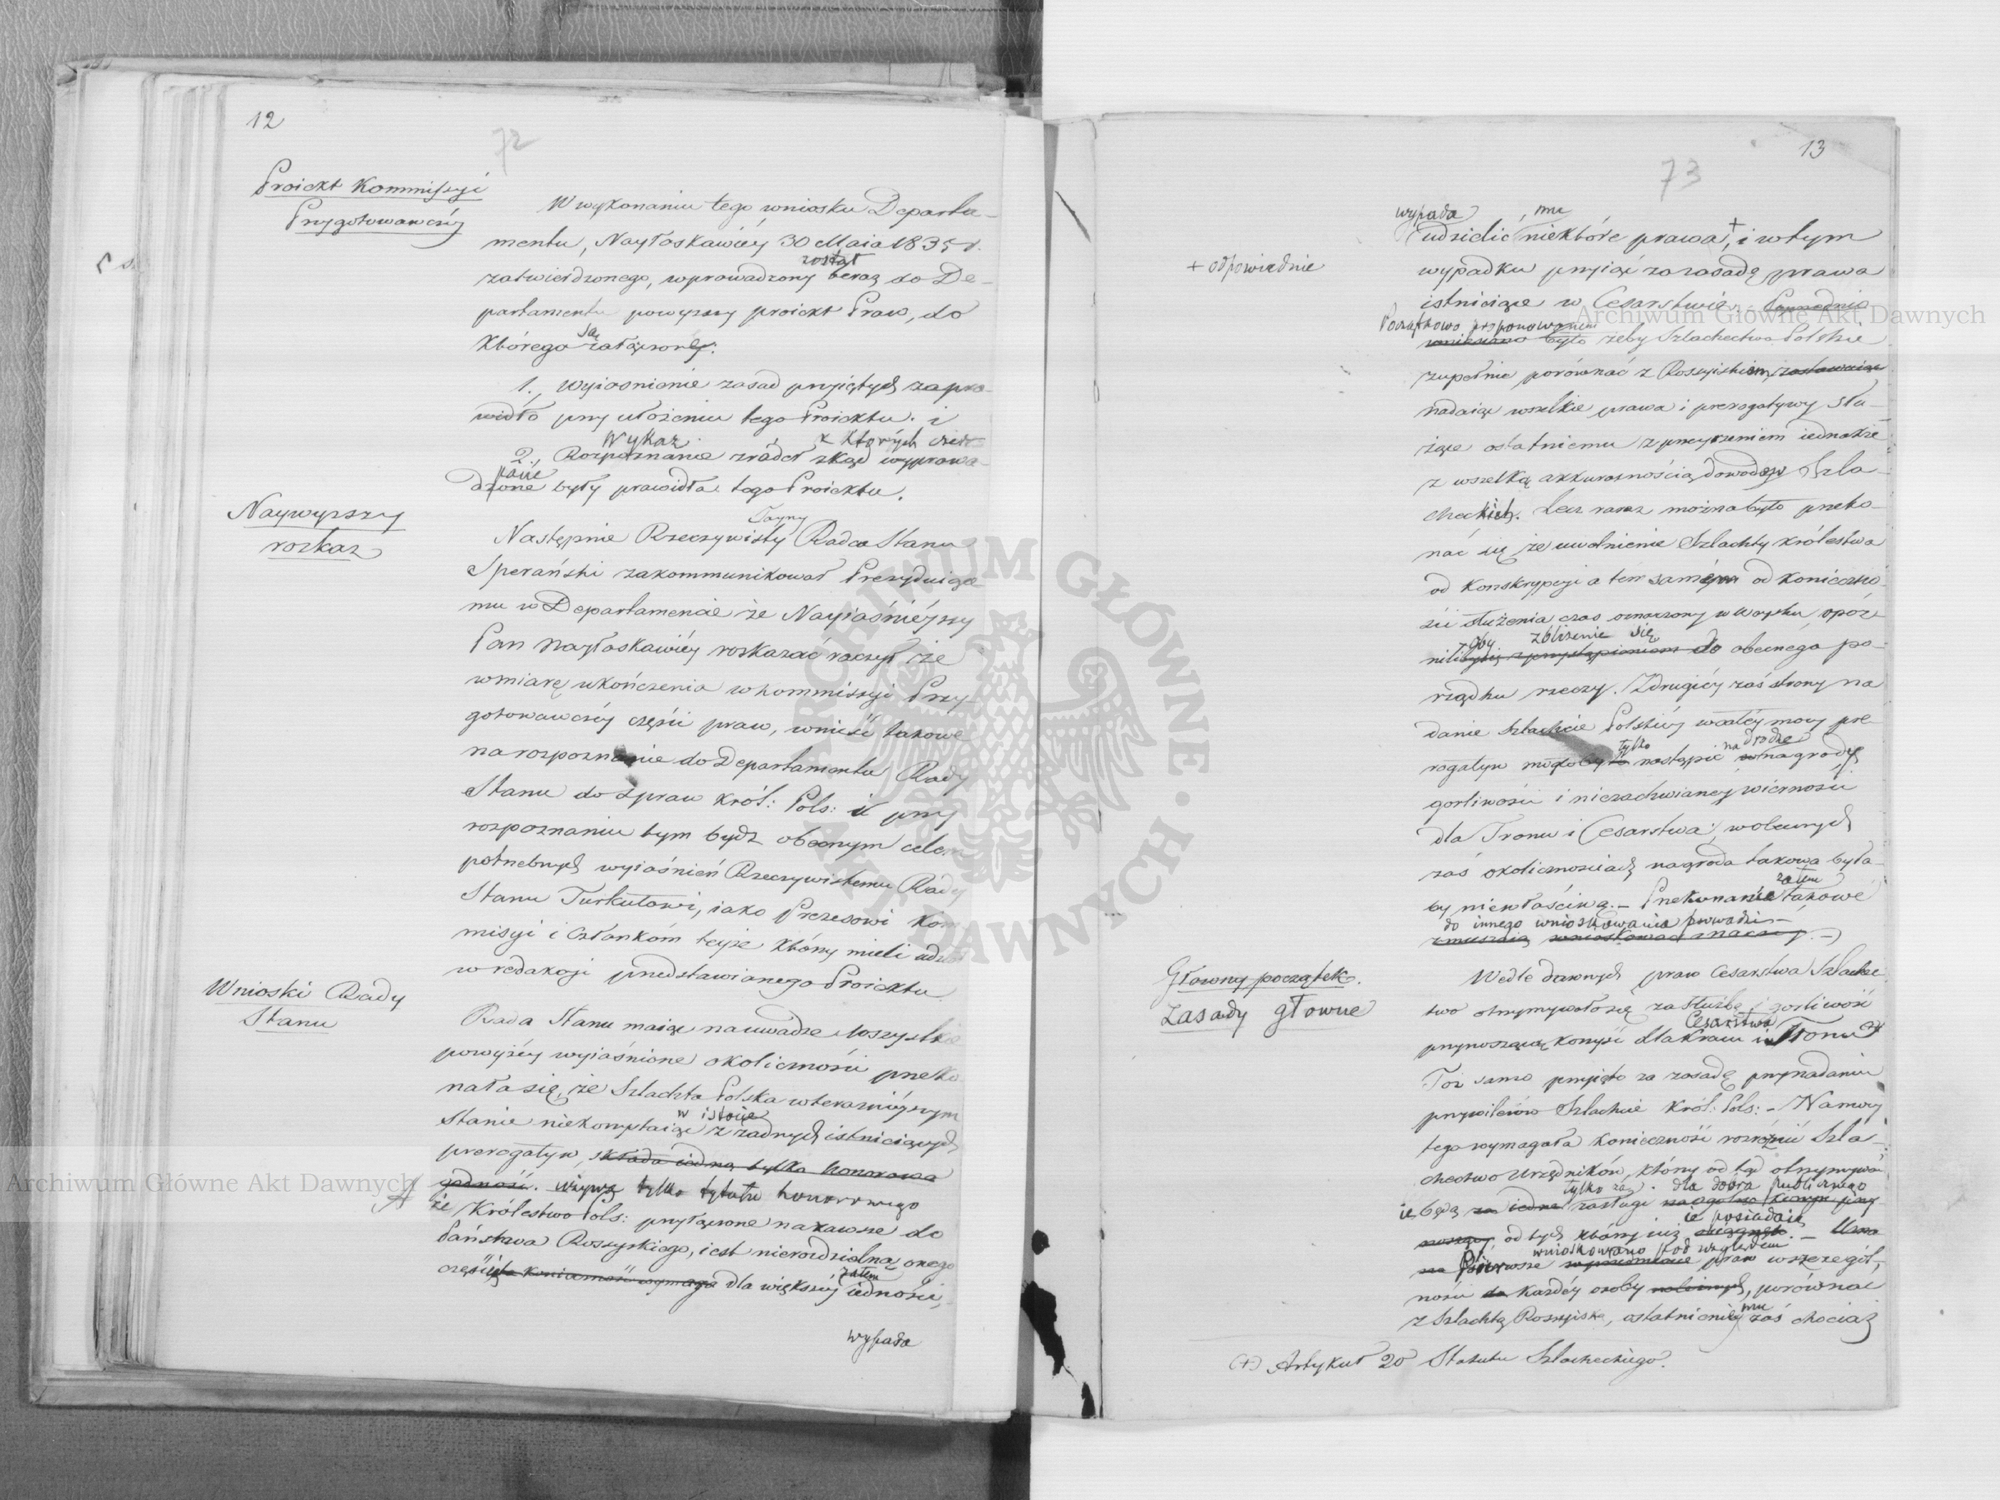 12
72
Proiekt Kommissyi
Przygotowawczéy
W wykonaniu tego wniosku Departa-
mentu, Nayłaskawiéy 30 Maia 1835 r.
został
zatwierdzonego, wprowadzony teraz do De-
partamentu powyższy proiekt Praw, do
są
którego załączone:
1., Wyiaśnienie zasad przyiętych za pra-
widło przy ułożeniu tego Proiektu. i
Wykaz z których czer-
2., Rozpoznanie źródeł skąd wyprowa-
pane
dzone były prawidła tego Proiektu.
Naywyższy
rozkaz
Tayny
Następnie Rzeczywisty Radca Stanu
Sperański zakommunikował Prezyduiące-
mu w Departamencie że Nayiaśnieyszy
Pan Nayłaskawiéy rozkazać raczył że
w miarę ukończenia w Kommissyi Przy-
gotowawczéy części praw, wnieść takowe
na rozpoznanie do Departamentu Rady
Stanu do Spraw Król: Pols: i przy
rozpoznaniu tym bydź obecnym celem
potrzebnych wyiaśnień Rzeczywistemu Radcy
Stanu Turkułowi, iako Prezesowi Kom
misyi i Członkóm teyże którzy mieli udział
w redakcyi przedstawianego Proiektu.
Wnioski Rady
Stanu
Rada Stanu maiąc na uwadze wszystkie
powyżéy wyiaśnione okoliczności przeko
nała się, że Szlachta Polska w teraźnieyszym
w istocie
stanie niekorzystaiąc z żadnych istnieiących
prerogatyw, składa iedną tylko honorową
godność. używa tylko tytułu honorowego
że Królestwo Pols: przyłączone na zawsze do
Państwa Rossyyskiego, iest nierozdzielną onego
zatem
częścią konieczność wymaga dla większéy iedności,
wypada
13
73
wypada mu
udzielić niektóre prawa + i w tym
+ odpowiednie
wypadku przyiąć za zasadę prawa
istnieiące w Cesarstwie. Poprzednio
Początkowo proponowanem
wniesiono było żeby Szlachectwo Polskie
zupełnie porównać z Rossyiskiem, zostawuiąc
nadaiąc wszelkie prawa i prerogatywy słu-
żące ostatniemu z przeyrzeniem iednakże
z wszelką akkuratnością dowodów Szla-
checkich. Lecz zaraz można było przeko-
nać się że uwolnienie Szlachty Królestwa
od konskrypcyi a tem samém od konieczno-
ści służenia czas oznaczony w Woysku, opóź-
zby zbliżenie się
niłoby się z przystąpieniem do obecnego po-
rządku rzeczy. Z drugiéy zaś strony na
danie Szlachcie Polskiéy wzaléy mocy pre
tylko na drodze
rogatyw mogłoby nastąpić w nagrodę
gorliwości i niezachwianéy wierności
dla Tronu i Cesarstwa, w obecnych
zaś okolicznościach nagroda takowa była-
zatem
by niewłaściwą. – Przekonanie takowe
do innego wnioskowania prowadzi –
zmuszaią wnioskować inaczéy. –
Głowny początek.
Zasady głowne
Wedle dawnych praw Cesarstwa Szlachec
two otrzymywało się za służbę i gorliwość
Cesarstwa
przynoszącą korzyść dla Kraiu i Tronu
Toż samo przyięto za zasadę przy nadaniu
przywileiów Szlachcie Król: Pols: – Na mocy
tego wymagała konieczność rozróżnić Szla-
chectwo Urzędników, którzy od tąd otrzymywa-
tylko za dla dobra publicznego
ie będą za iedne zasługi
ie posiadaią
od tych którzy iuż
wnioskowano pod względem
pierwsze praw w szczegól,
ności każdéy osoby, porównać
mu
z Szlachtą Rossyiską, ostatniemu zaś chociaż
(+) Artykuł 20 Statutu Szlacheckiego.
Archiwum Główne Akt Dawnych
Archiwum Główne Akt Dawnych
ARCHIWUM GŁÓWNE AKT DAWNYCH